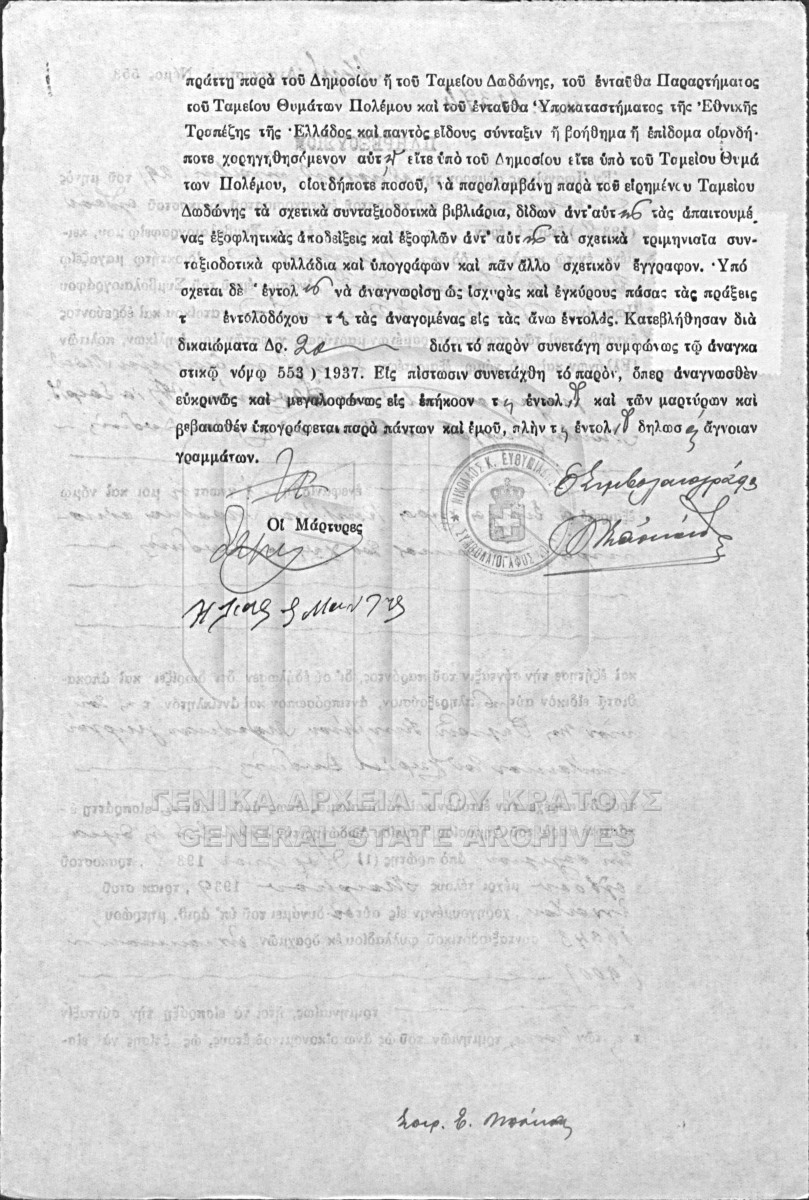 πράττη παρὰ τοῦ Δημοσίου ἢ τοῦ Ταμείου Δωδώνης, τοῦ ἐνταῦθα Παραρτήματος
τοῦ Ταμείου Θυμάτων Πολέμου καὶ τοῦ ἐνταῦθα Ὑποκαταστήματος τῆς Ἐθνικῆς
Τραπέζης τῆς Ἑλλάδος καὶ παντὸς εἴδους σύνταξιν ἢ βοήθημα ἢ ἐπίδομα οἱονδή-
ποτε χορηγηθησόμενον αὐτ εἴτε ὑπὸ τοῦ Δημοσίου εἴτε ὑπὸ τοῦ Ταμείου Θυμά
των Πολέμου, οἱουδήποτε ποσοῦ, νὰ παραλαμβάνη παρὰ τοῦ εἰρημένου Ταμείου
Δωδώνης τὰ σχετικὰ συνταξιοδοτικὰ βιβλιάρια, δίδων ἀντ' αὐτῆς τὰς ἀπαιτουμέ-
νας ἐξοφλητικὰς ἀποδείξεις καὶ ἐξοφλῶν ἀντ' αὐτῆς τὰ σχετικὰ τριμηνιαῖα συν-
ταξιοδοτικὰ φυλλάδια καὶ ὑπογράφων καὶ πᾶν ἄλλο σχετικὸν ἔγγραφον. Ὑπό
σχεται δὲ ἐντολ νὰ ἀναγνωρίση ὡς ἰσχυρὰς καὶ ἐγκύρους πάσας τὰς πράξεις
τ ἐντολοδόχου τ τὰς ἀναγομένας εἰς τὰς ἄνω ἐντολάς. Κατεβλήθησαν διὰ
δικαιώματα Δρ. 20 διότι τὸ παρὸν συνετάγη συμφώνως τῷ ἀναγκα
στικῷ νόμῳ 553 ) 1937. Εἰς πίστωσιν συνετάχθη τὸ παρὸν, ὅπερ ἀναγνωσθὲν
εὐκρινῶς καὶ μεγαλοφώνως εἰς ἐπήκοον τ ἐντολ καὶ τῶν μαρτύρων καὶ
βεβαιωθὲν ὑπογράφεται παρὰ πάντων καὶ ἐμοῦ, πλὴν τ ἐντολ δηλωσ ἄγνοιαν
γραμμάτων.
Οἱ Μάρτυρες
ΝΙΚΟΛΑΟΣ Κ. ΕΥΘΥΜΙΑΔΗΣ
ΣΥΜΒΟΛΑΙΟΓΡΑΦΟΣ
Ὁ Συμβολαιογράφος
ΓΕΝΙΚΑ ΑΡΧΕΙΑ ΤΟΥ ΚΡΑΤΟΥΣ
GENERAL STATE ARCHIVES